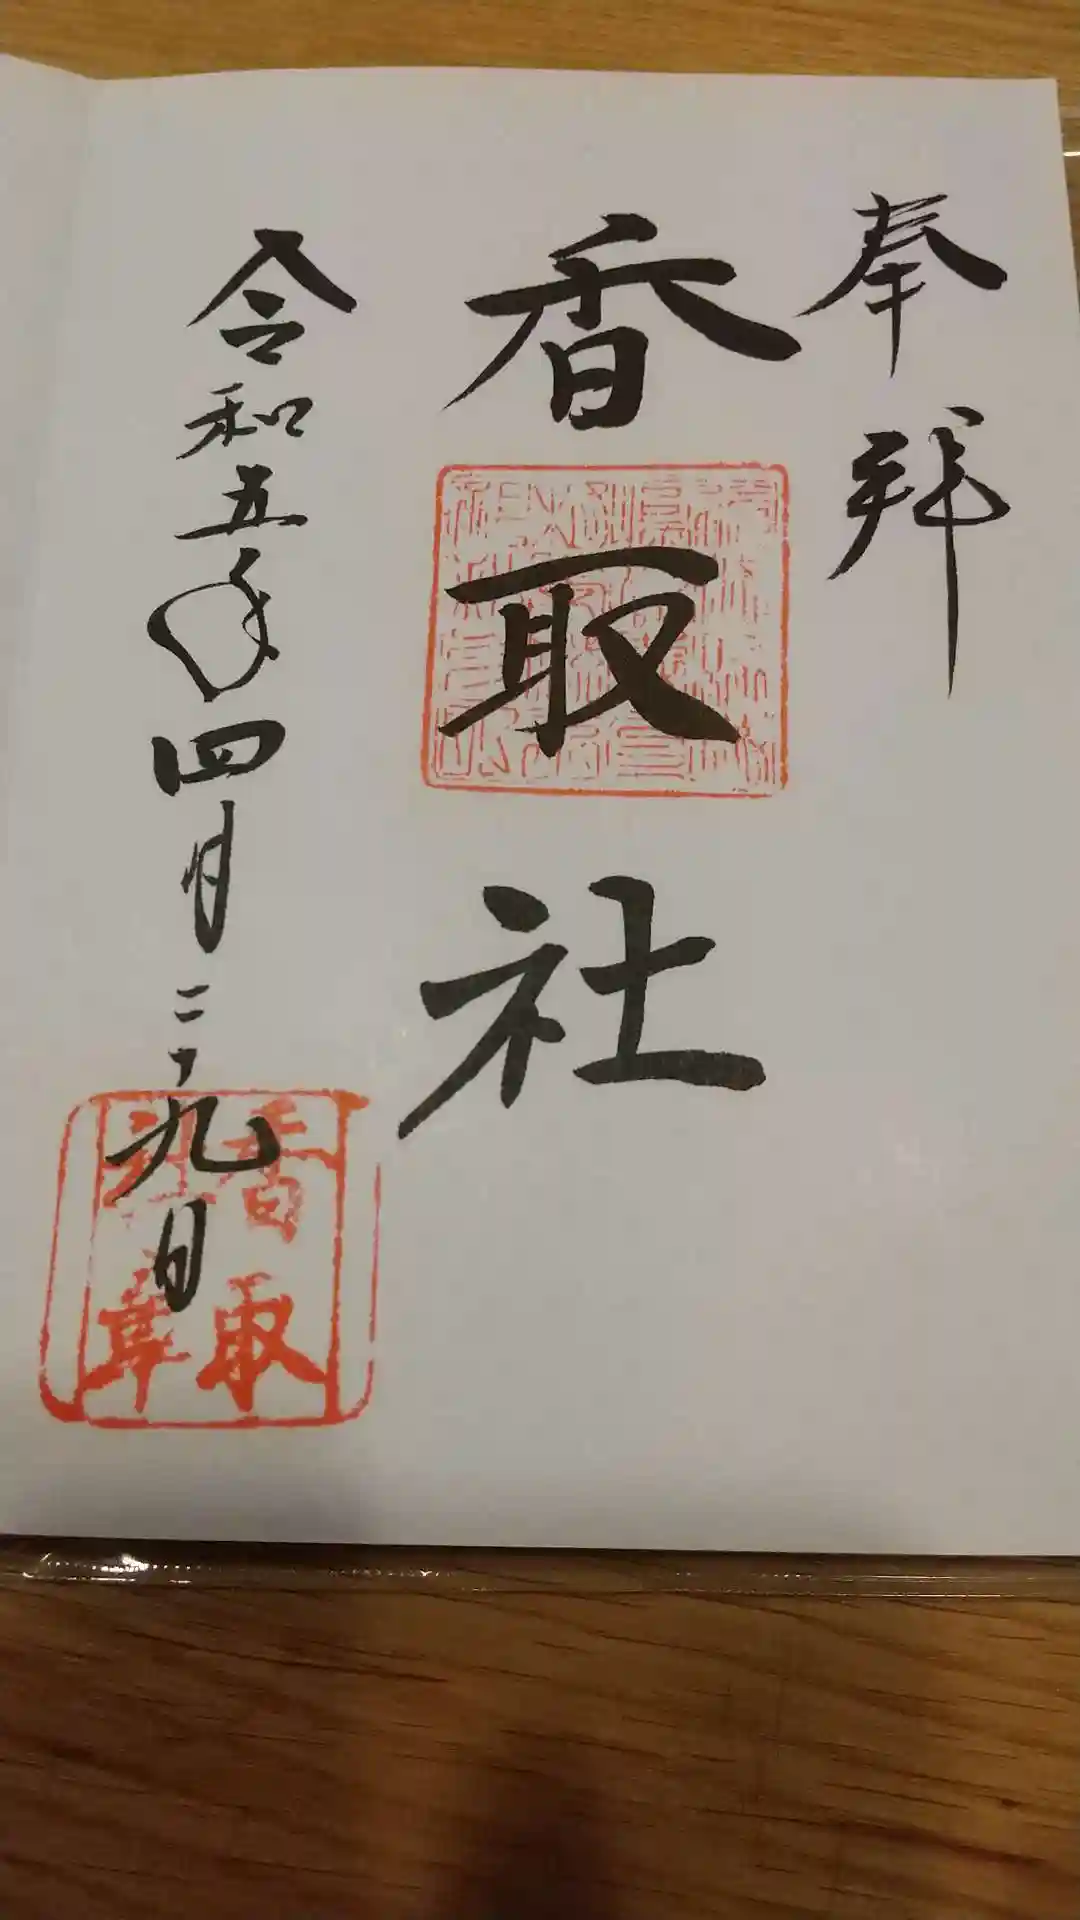 奉拝
香取社
令和五年四月二十九日
香取
社章